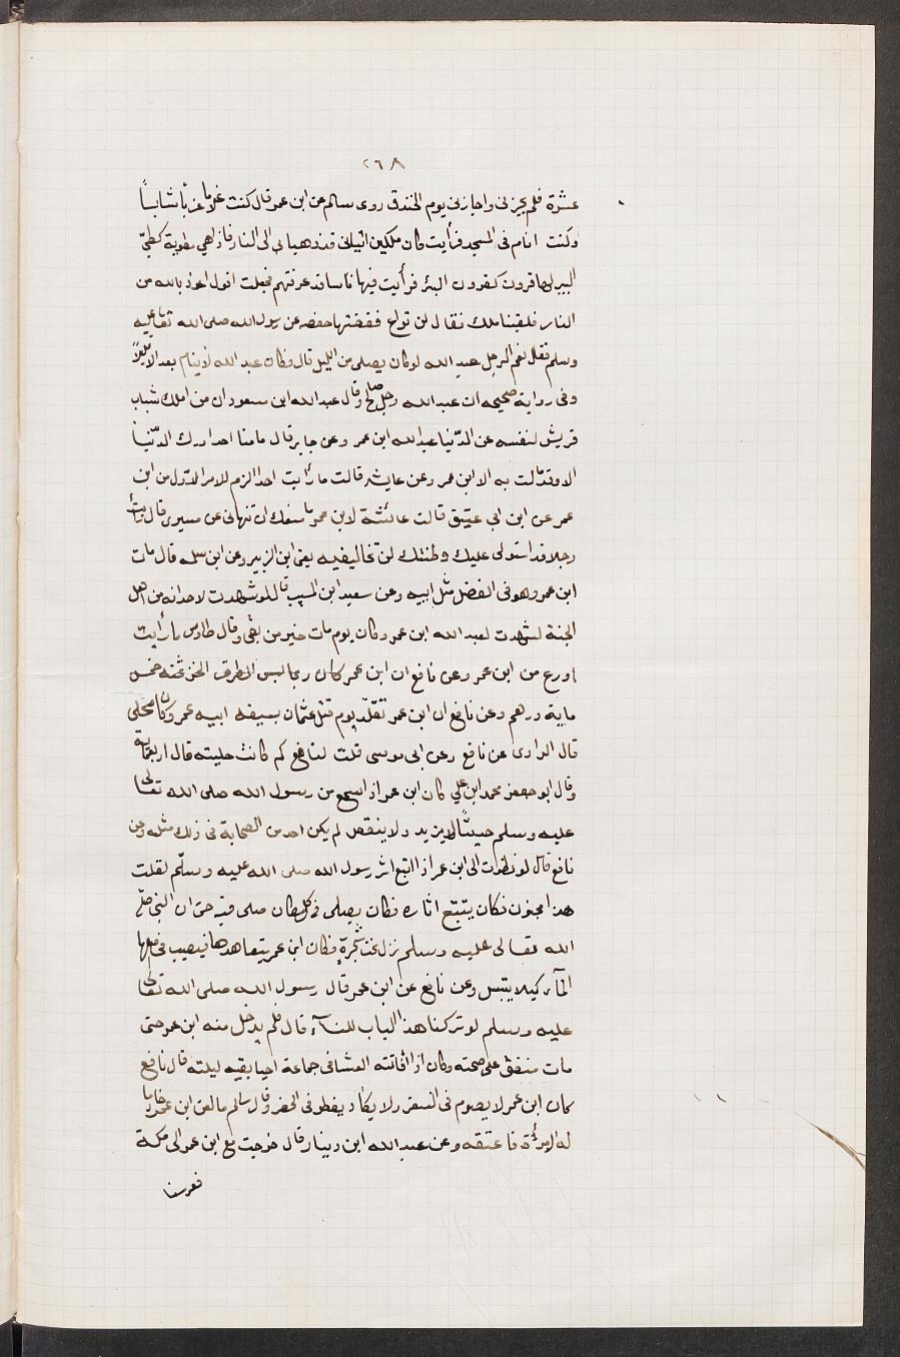 ٢٦٨
عشرة فلم يجزنى واجازنى يوم الخندق روى سالم عن ابن عمر قال كنت غلاما عزبًا شابًا
وكنت انام فى المسجد فرأيت كان ملكين اتيانى فذهبا بى الى النار فاذا هى مطوية كطىّ
البير لها قرون كقرون البئر فرأيت فيها ناسا قد عرفتهم فجعلت اقول اعوذ بالله من
النار فلقينا ملك فقال لن تراع فقصّتها حفصه عن رسول الله صلى الله تعالى عليه
وسلم فقال نعم الرجل عبد الله لو كان يصلى من الليل قال فكان عبد الله لا ينام بعد الا قليلاً
وفى رواية صحيحه ان عبد الله رجل صالح وقال عبد الله ابن مسعود ان من املك شباب
قريش لنفسه عن الدّنيا عبد الله ابن عمر وعن جابر قال ما منا احد ادرك الدّنيا
الا وقد مالت به الا ابن عمر وعن عايشه قالت ما رأيت احدا الزم للامر الاوّل من ابن
عمر عن ابن ابى عتيق قالت عائشة لابن عمر ما منعك ان تنهانى عن مسيرى قال رأيت
رجلا قد استولى عليك وظننك لن تخاليفيه يعنى ابن الزبير وعن ابن سلمه قال مات
ابن عمر وهو فى الفضل مثل ابيه وعن سعيد ابن المسيب قال لو شهدت لاحد انه من اهل
الجنة لشهدت لعبد الله ابن عمر وكان يوم مات خير من بقى وقال طاوس ما رأيت
اورع من ابن عمر وعن نافع ان ابن عمر كان ربما لبس المطرف الخز ثمنه خمس
ماية درهم وعن نافع ان ابن عمر تقلّد يوم قتل عثمان بسيفه ابيه عمر وكان محلى
قال الراوى عن نافع وعن ابى موسى قلت لنافع كم كانت حليته قال اربعماية
وقال ابو جعفر محمد ابن على كان ابن عمر اذا سمع من رسول الله صلى الله تعالى
عليه وسلم حيثًا لا يزيد ولا ينقص لم يكن احد من الصحابة فى ذلك مثله وعن
نافع قال لو نظرت الى ابن عمر اذا اتبع اثر رسول الله صلى الله عليه وسلّم لقلت
هذا مجنون فكان يتتبّع اثاره فكان يصلى فى كل مكان صلى فيه حتى ان النبى صلى
الله تعالى عليه وسلم نزل تحت شجرة فكان ابن عمر يتعاهدها فيصيب فى اصلها
المآء كيلا ييبس وعن نافع عن ابن عمر قال رسول الله صلى الله تعالى
عليه وسلم لو تركنا هذا الباب للنسآء قال فلم يدخل منه ابن عمر حتى
مات متفق على صحته وكان اذا فاتته العشا فى جماعة احيا بقيه ليلته قال نافع
كان ابن عمر لا يصوم فى السفر ولا يكاد يفطر فى الحضر وقال سالم ما لعن ابن عمر خادما
له الا مرّة فاعتقه وعن عبد الله ابن دينار قال خرجت مع ابن عمر الى مكة
فعرسنا